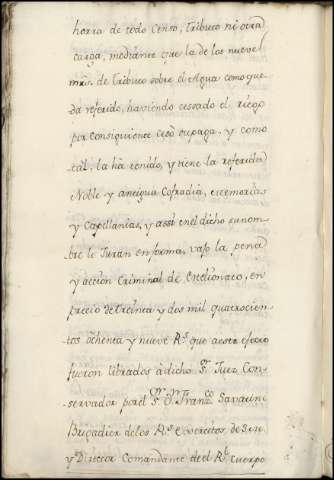 horra de todo Censo, tributo ni otra
carga, mediante que la de los nueve
mrs. de tributo sobre el Agua como que-
da referido, haviendo cessado el riego
por consiguiente cesó su paga. y como
tal, la ha tenido, y tiene la referida
Noble y antigua Cofradia, ememorias
y Capellanias, y assi en el dicho su nom-
bre le Juran en forma, vajo la pena
y accion Criminal de estelionato, en
precio de treinta y dos mil quatrocien-
tos ochenta y nueve Rs. que a este efecto
fueron librados à dicho Sr. Juez Con-
servador por el Sr. Dn. Franco. Savatini
Brigadier de los Rs. Exercitos de S.M.
y Director Comandante de el Rl. Cuerpo